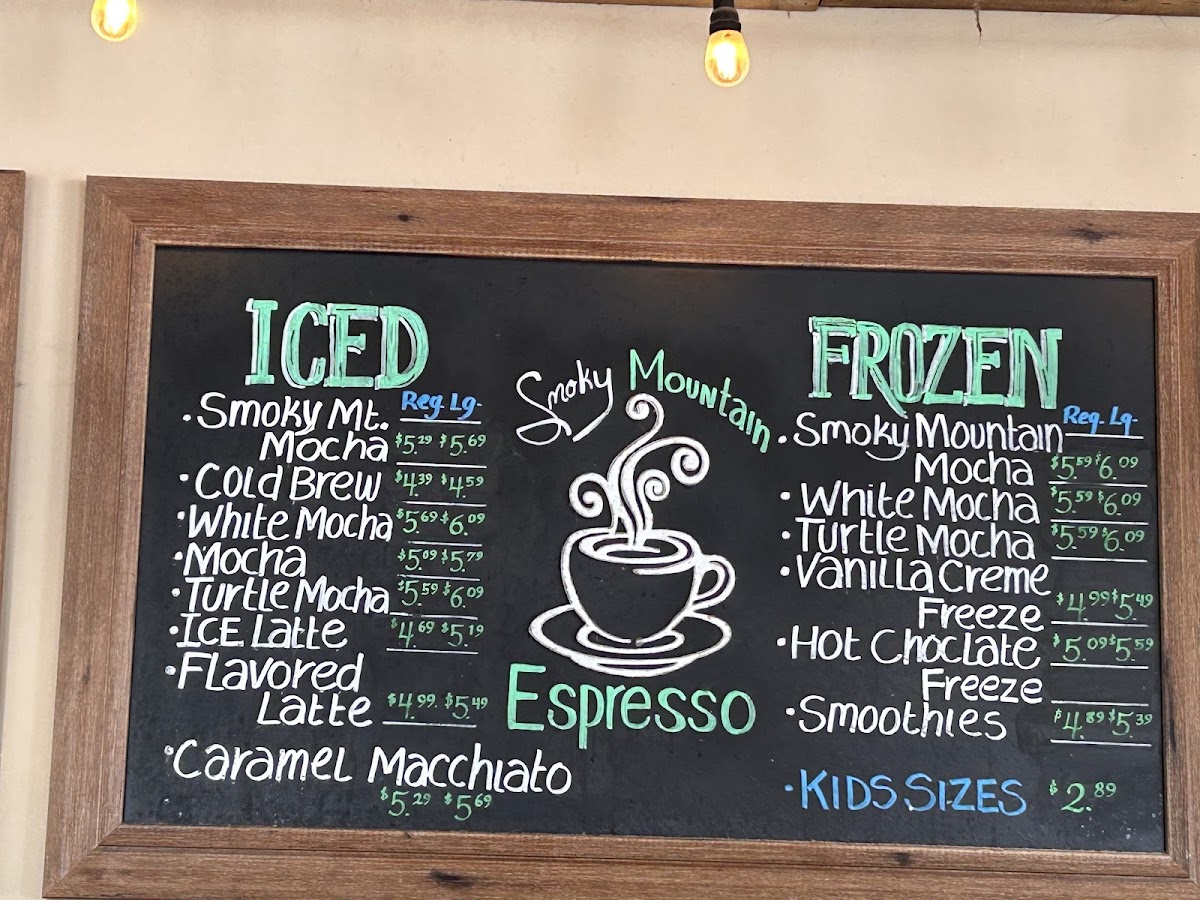 ICED
Reg. Lg.
• Smoky Mt.
Mocha $5.29 $5.69
• Cold Brew $4.39 $4.59
• White Mocha $5.69 $6.09
• Mocha $5.09 $5.79
• Turtle Mocha $5.59 $6.09
• ICE Latte $4.69 $5.19
• Flavored
Latte $4.99. $5.49
• Caramel Macchiato
$5.29 $5.69
Smoky Mountain
Espresso
FROZEN
Reg. Lg.
• Smoky Mountain
Mocha $5.59 $6.09
• White Mocha $5.59 $6.09
• Turtle Mocha $5.59 $6.09
• Vanilla Creme
Freeze $4.99 $5.49
• Hot Choclate $5.09 $5.59
Freeze
• Smoothies $4.89 $5.39
• KIDS SIZES $2.89